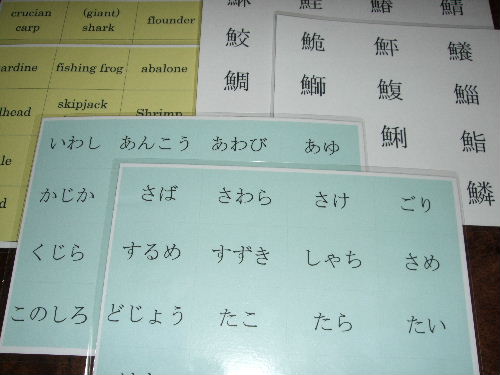 crucian carp
(giant) shark
flounder
ardine
fishing frog
abalone
lhead
skipjack
Shrimp
le
d
鯖
鮫
鯛
鮠
鰤
鰒
鯔
鯏
鮨
鱗
いわし あんこう あわび あゆ
かじか
くじら
このしろ
さば さわら さけ ごり
するめ すずき しゃち さめ
どじょう たこ たら たい